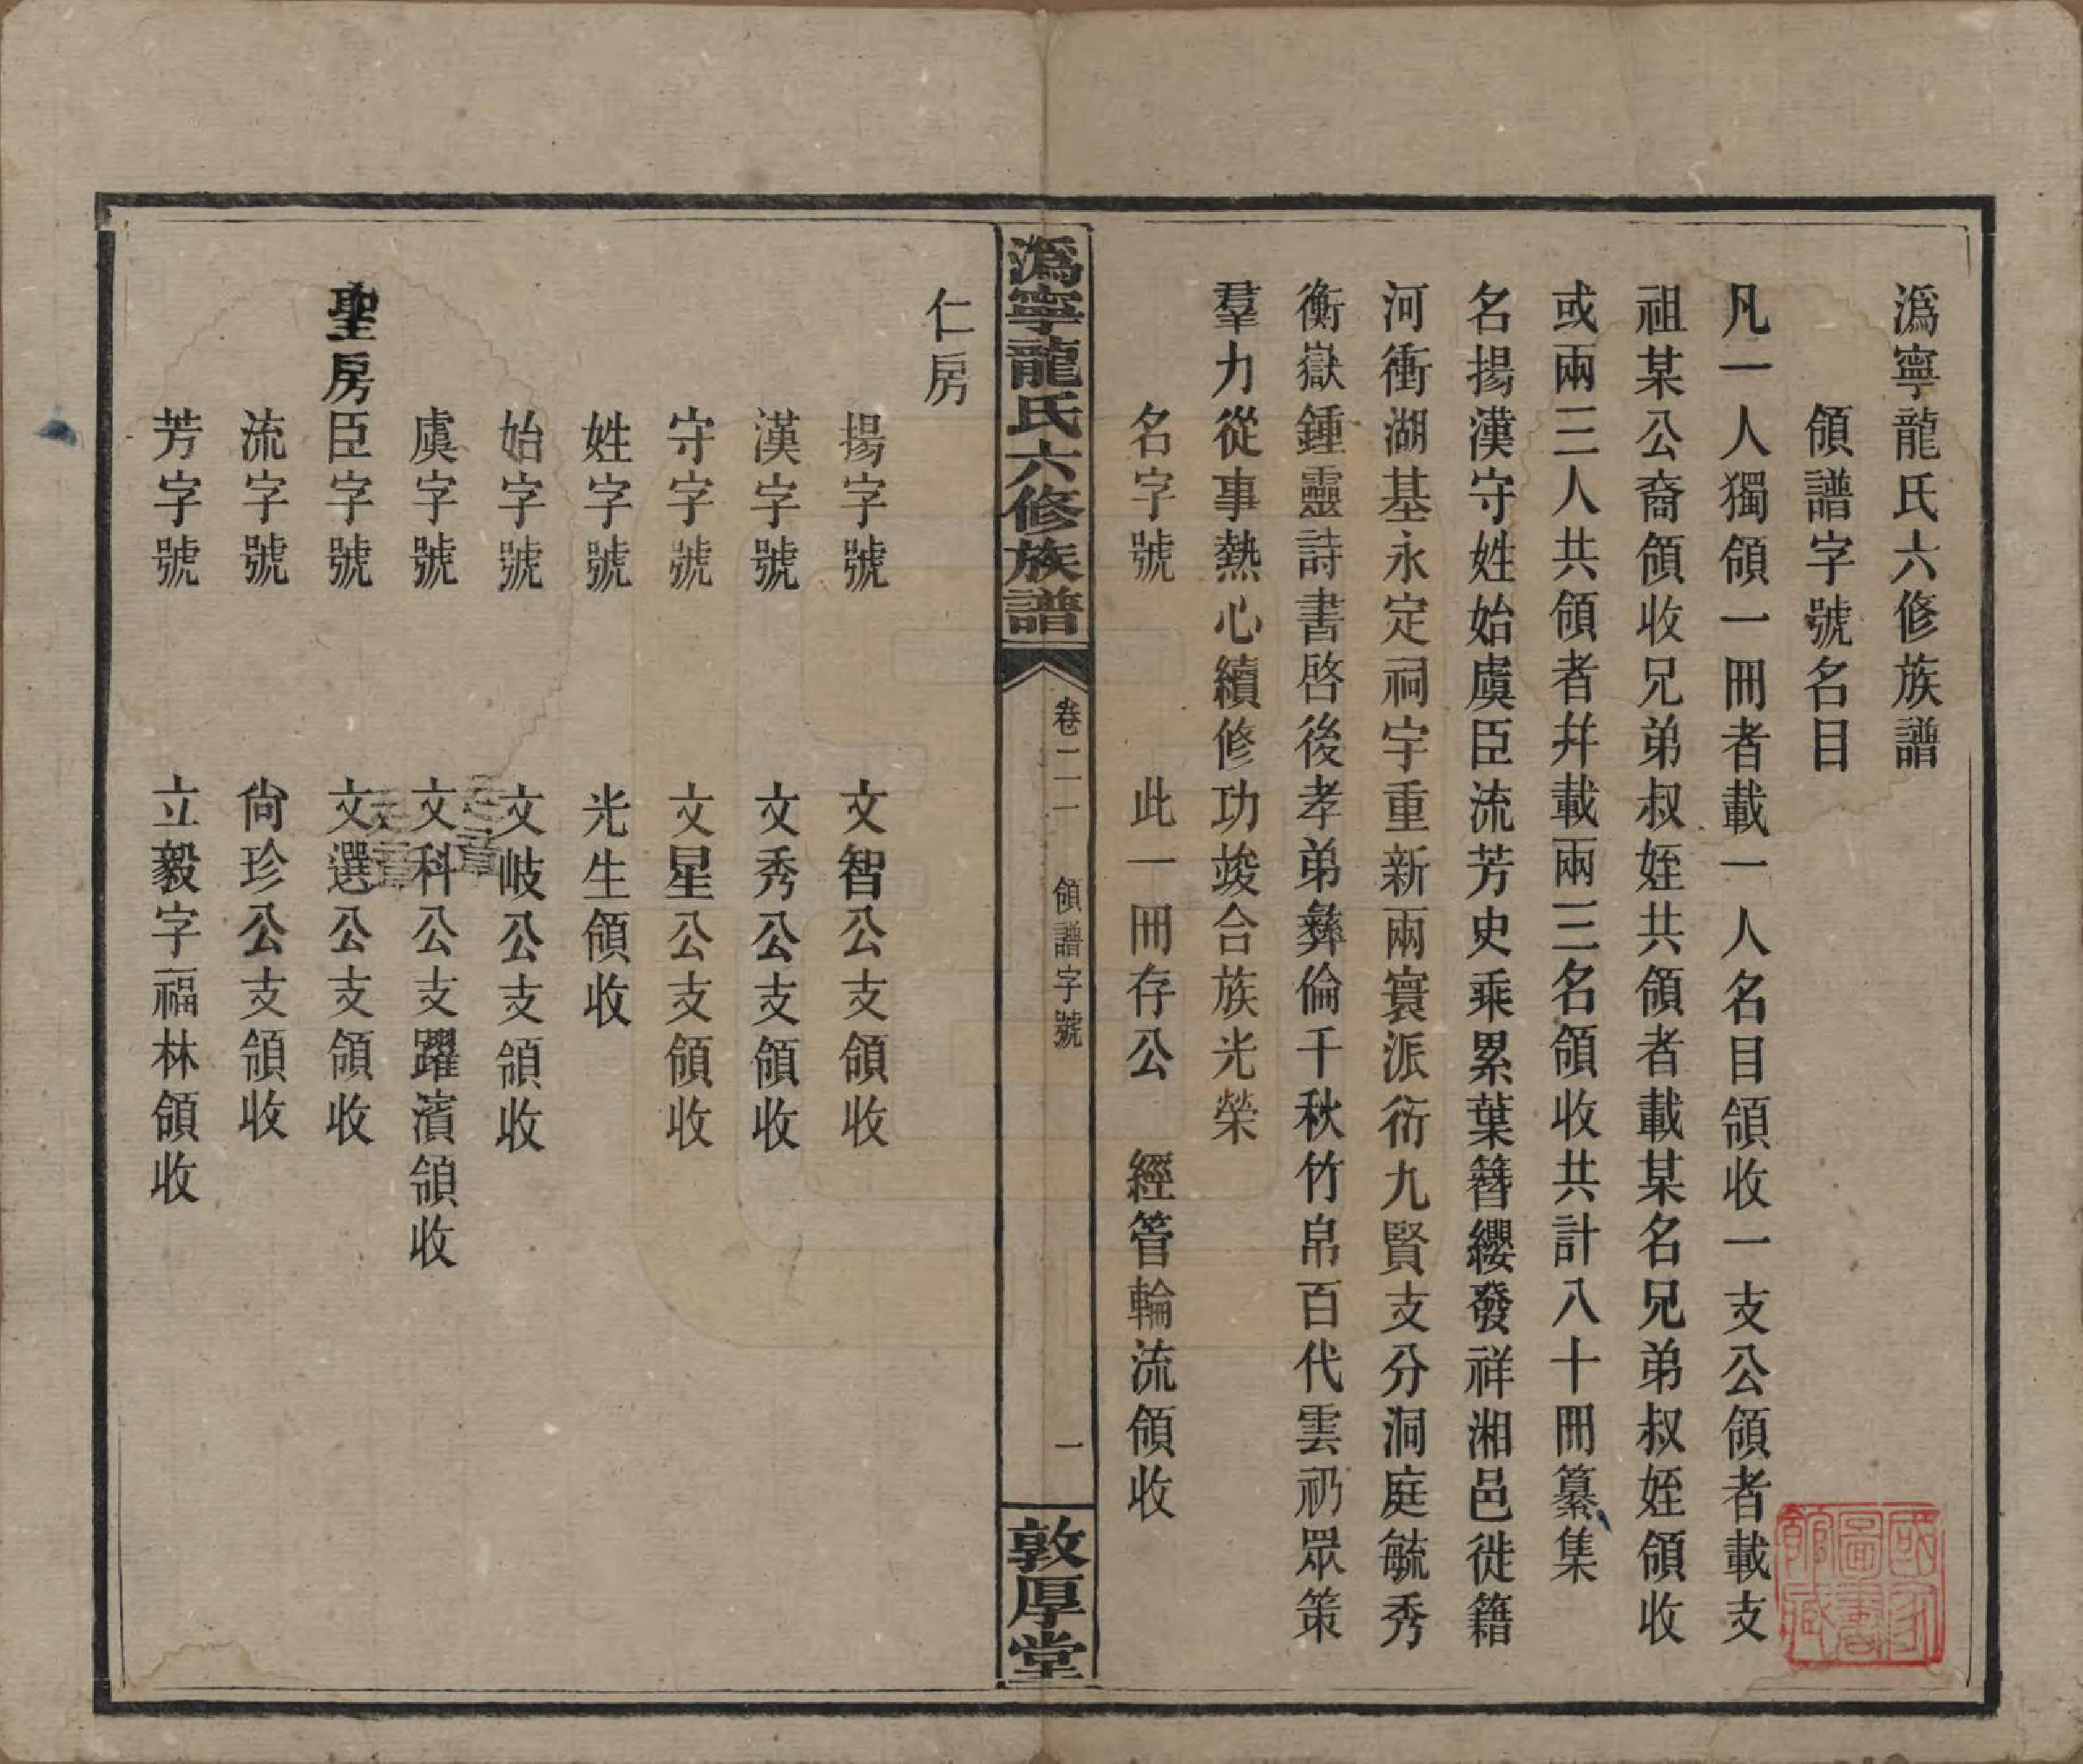 潙寧龍氏六修族譜
領譜字號名目
凡一人獨領一冊者載一人名目領收一支公領者載支
祖某公裔領收兄弟叔姪共領者載某名兄弟叔姪領收
或兩三人共領者幷載兩三名領收共計八十冊纂集
名揚漢守姓始虞臣流芳史乘累葉簪纓發祥湘邑徙籍
河衝湖基永定祠宇重新兩寰派衍九賢支分洞庭毓秀
衡嶽鍾靈詩書啓後孝弟彝倫千秋竹帛百代雲礽眾策
羣力從事熱心續修功竣合族光榮
名字號 此一冊存公 經管輪流領收
潙寧龍氏六修族譜 卷二一 領譜字號 一 敦厚堂
仁房
揚字號 文智公支領收
漢字號 文秀公支領收
守字號 文星公支領收
姓字號 光生領收
始字號 文岐公支領收
虞字號 文科公支躍濱領收
聖房臣字號 文選公支領收
流字號 尙珍公支領收
芳字號 立毅字福林領收
國家圖書館藏